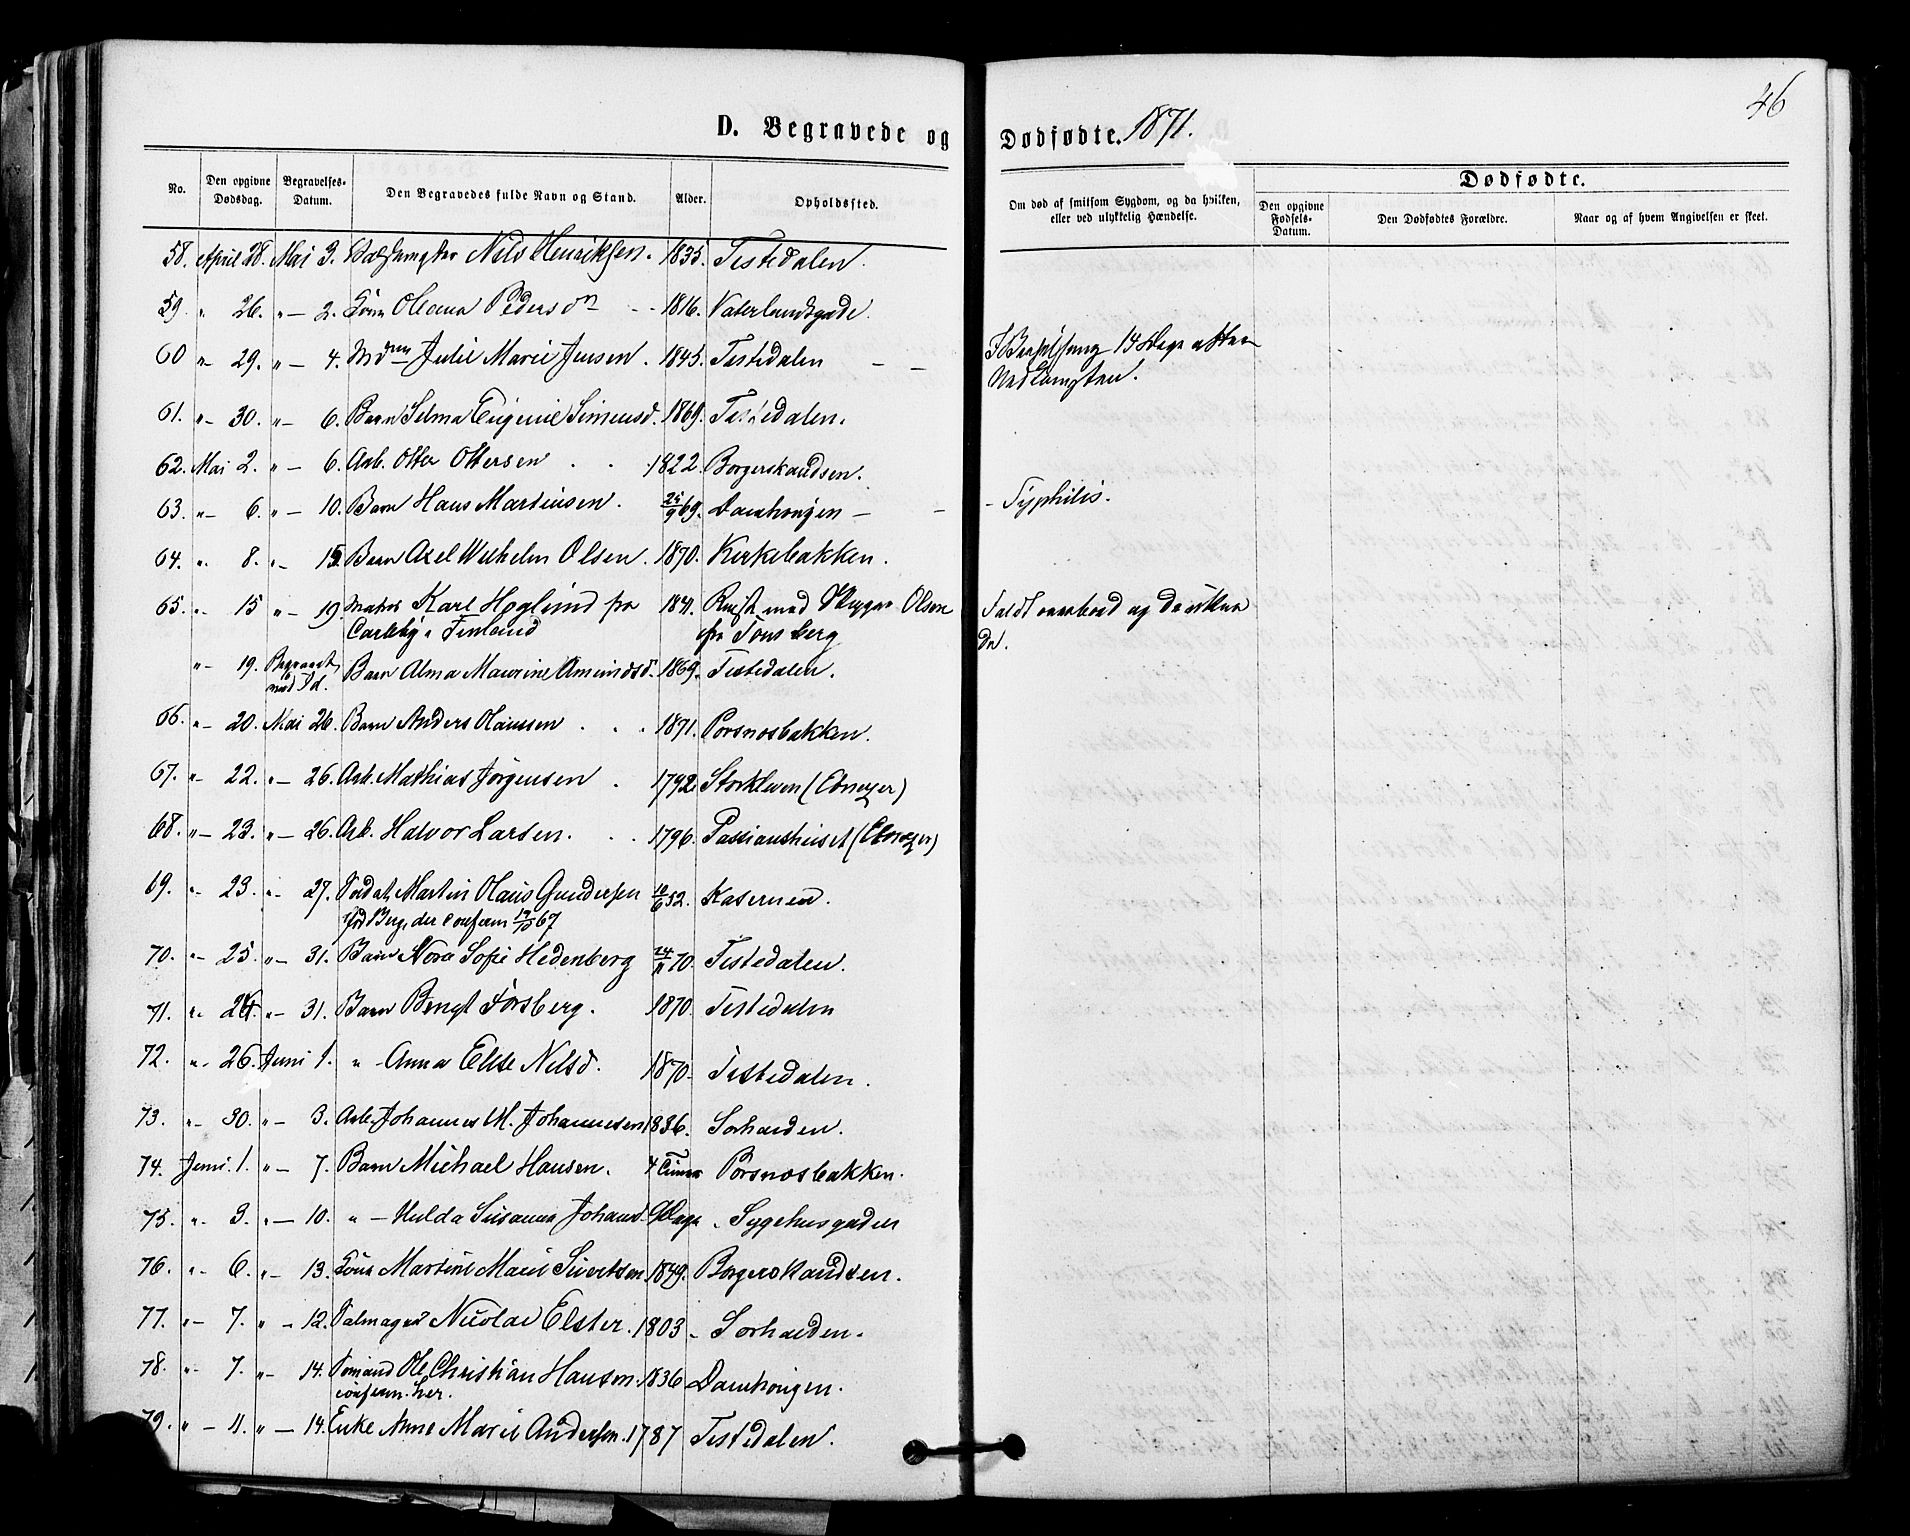 46
D. Begravede og Dødfødte. 1871.
No. Den opgivne Dødsdag. Begravelses-Datum. Den Begravedes fulde Navn og Stand. Alder. Opholdssted. Om død af smitsom Sygdom, og da hvilken, eller ved ulykkelig Hændelse. Dødfødte. Den opgivne Fødsels-Datum. Den Dødfødtes Forældre. Naar og af hvem Angivelsen er skeet.
58. April 28. Mai 3. Nils Henriksen. 1835. Tistedalen.
59. " 26. " – 2. Kone Oleana Pedersdn 1816. Vaterlandsgade.
60 " 29. " – 4. Julie Marie Jensen. 1845. Tistedalen – – I Barselseng 14 Dage efter
Nedkomsten.
61. " – 30. " – 6. Barn Selma Eugenie Simensd. 1869. Tistedalen.
62. Mai 2. " – 6. Arb. Otter Ottersen 1822. Borgerskandsen.
63. " – 6. " – 10. Barn Hans Martinsen. 25/9 69. Damhougen – – – Syphilis.
64. " 8. " – 15. Barn Axel Wilhelm Olsen. 1870. Kirkebakken.
65. " 15 " – 19. Matros Karl Høglund fra 1841. med Skipper Olsen Faldt overbord og druknede.
Carleby i Finland fra Tønsberg
" – 19. Begravet med Id. Barn Alma Maurine Amundsd. 1869. Tistedalen.
66. " – 20. Mai 26. Barn Anders Hanssen 1871. Porsnesbakken.
67. " – 22. " – 26. Arb. Mathias Jørgensen 1792. Storkleven (Ebnezer)
68. " – 23. " – 26. Arb. Halvor Larsen. 1796. (Ebnezer)
69. " – 23. " – 27. Soldat Martin Olaus Gundersen 10/6 52. Kasernen.
Berg, der conferm 19/10 67
70. " – 25. " – 31. Barn Nora Sofie Hedenberg 24/11 70. Tistedalen.
71. " – " – 31. Barn Bengt Forsberg. 1870. Tistedalen
72. " – 26. Juni 1. " – Anna Elise Nilsd. 1870. Tistedalen.
73. " – 30. " – 3. Arb. Johannes M. Johannesen 1836. Sorhaeden.
74. Juni 1. " – 7. Barn Michael Hansen. 4 Timer Porsnesbakken.
75. " 3. " – 10. " – Hulda Susanna Johansd. 9 Dage. Sygehusgaden
76. " – 6. " – 13. Kone Martine Marie Sivertsen 1849. Borgerskandsen.
77. " – 7. " – 12. Nicolai Elster. 1803. Sorhaeden.
78. " – 7. " – 14. Sømand Ole Christian Hansen. 1836 Damhougen.
conferm. her.
79. " – 11. " – 14. Enke Anne Marie Andersen. 1787 Tistedalen.